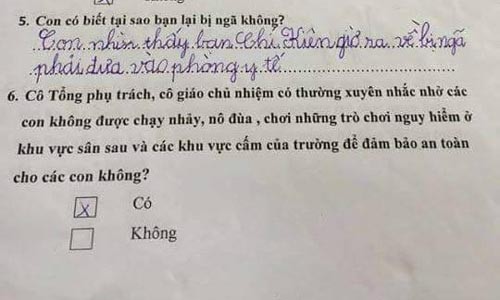 5. Con có biết tại sao bạn lại bị ngã không?
Con nhìn thấy bạn Chí Kiên giờ ra về bị ngã
phải đưa vào phòng y tế
6. Cô Tổng phụ trách, cô giáo chủ nhiệm có thường xuyên nhắc nhở các
con không được chạy nhảy, nô đùa , chơi những trò chơi nguy hiểm ở
khu vực sân sau và các khu vực cấm của trường để đảm bảo an toàn
cho các con không?
X Có
Không